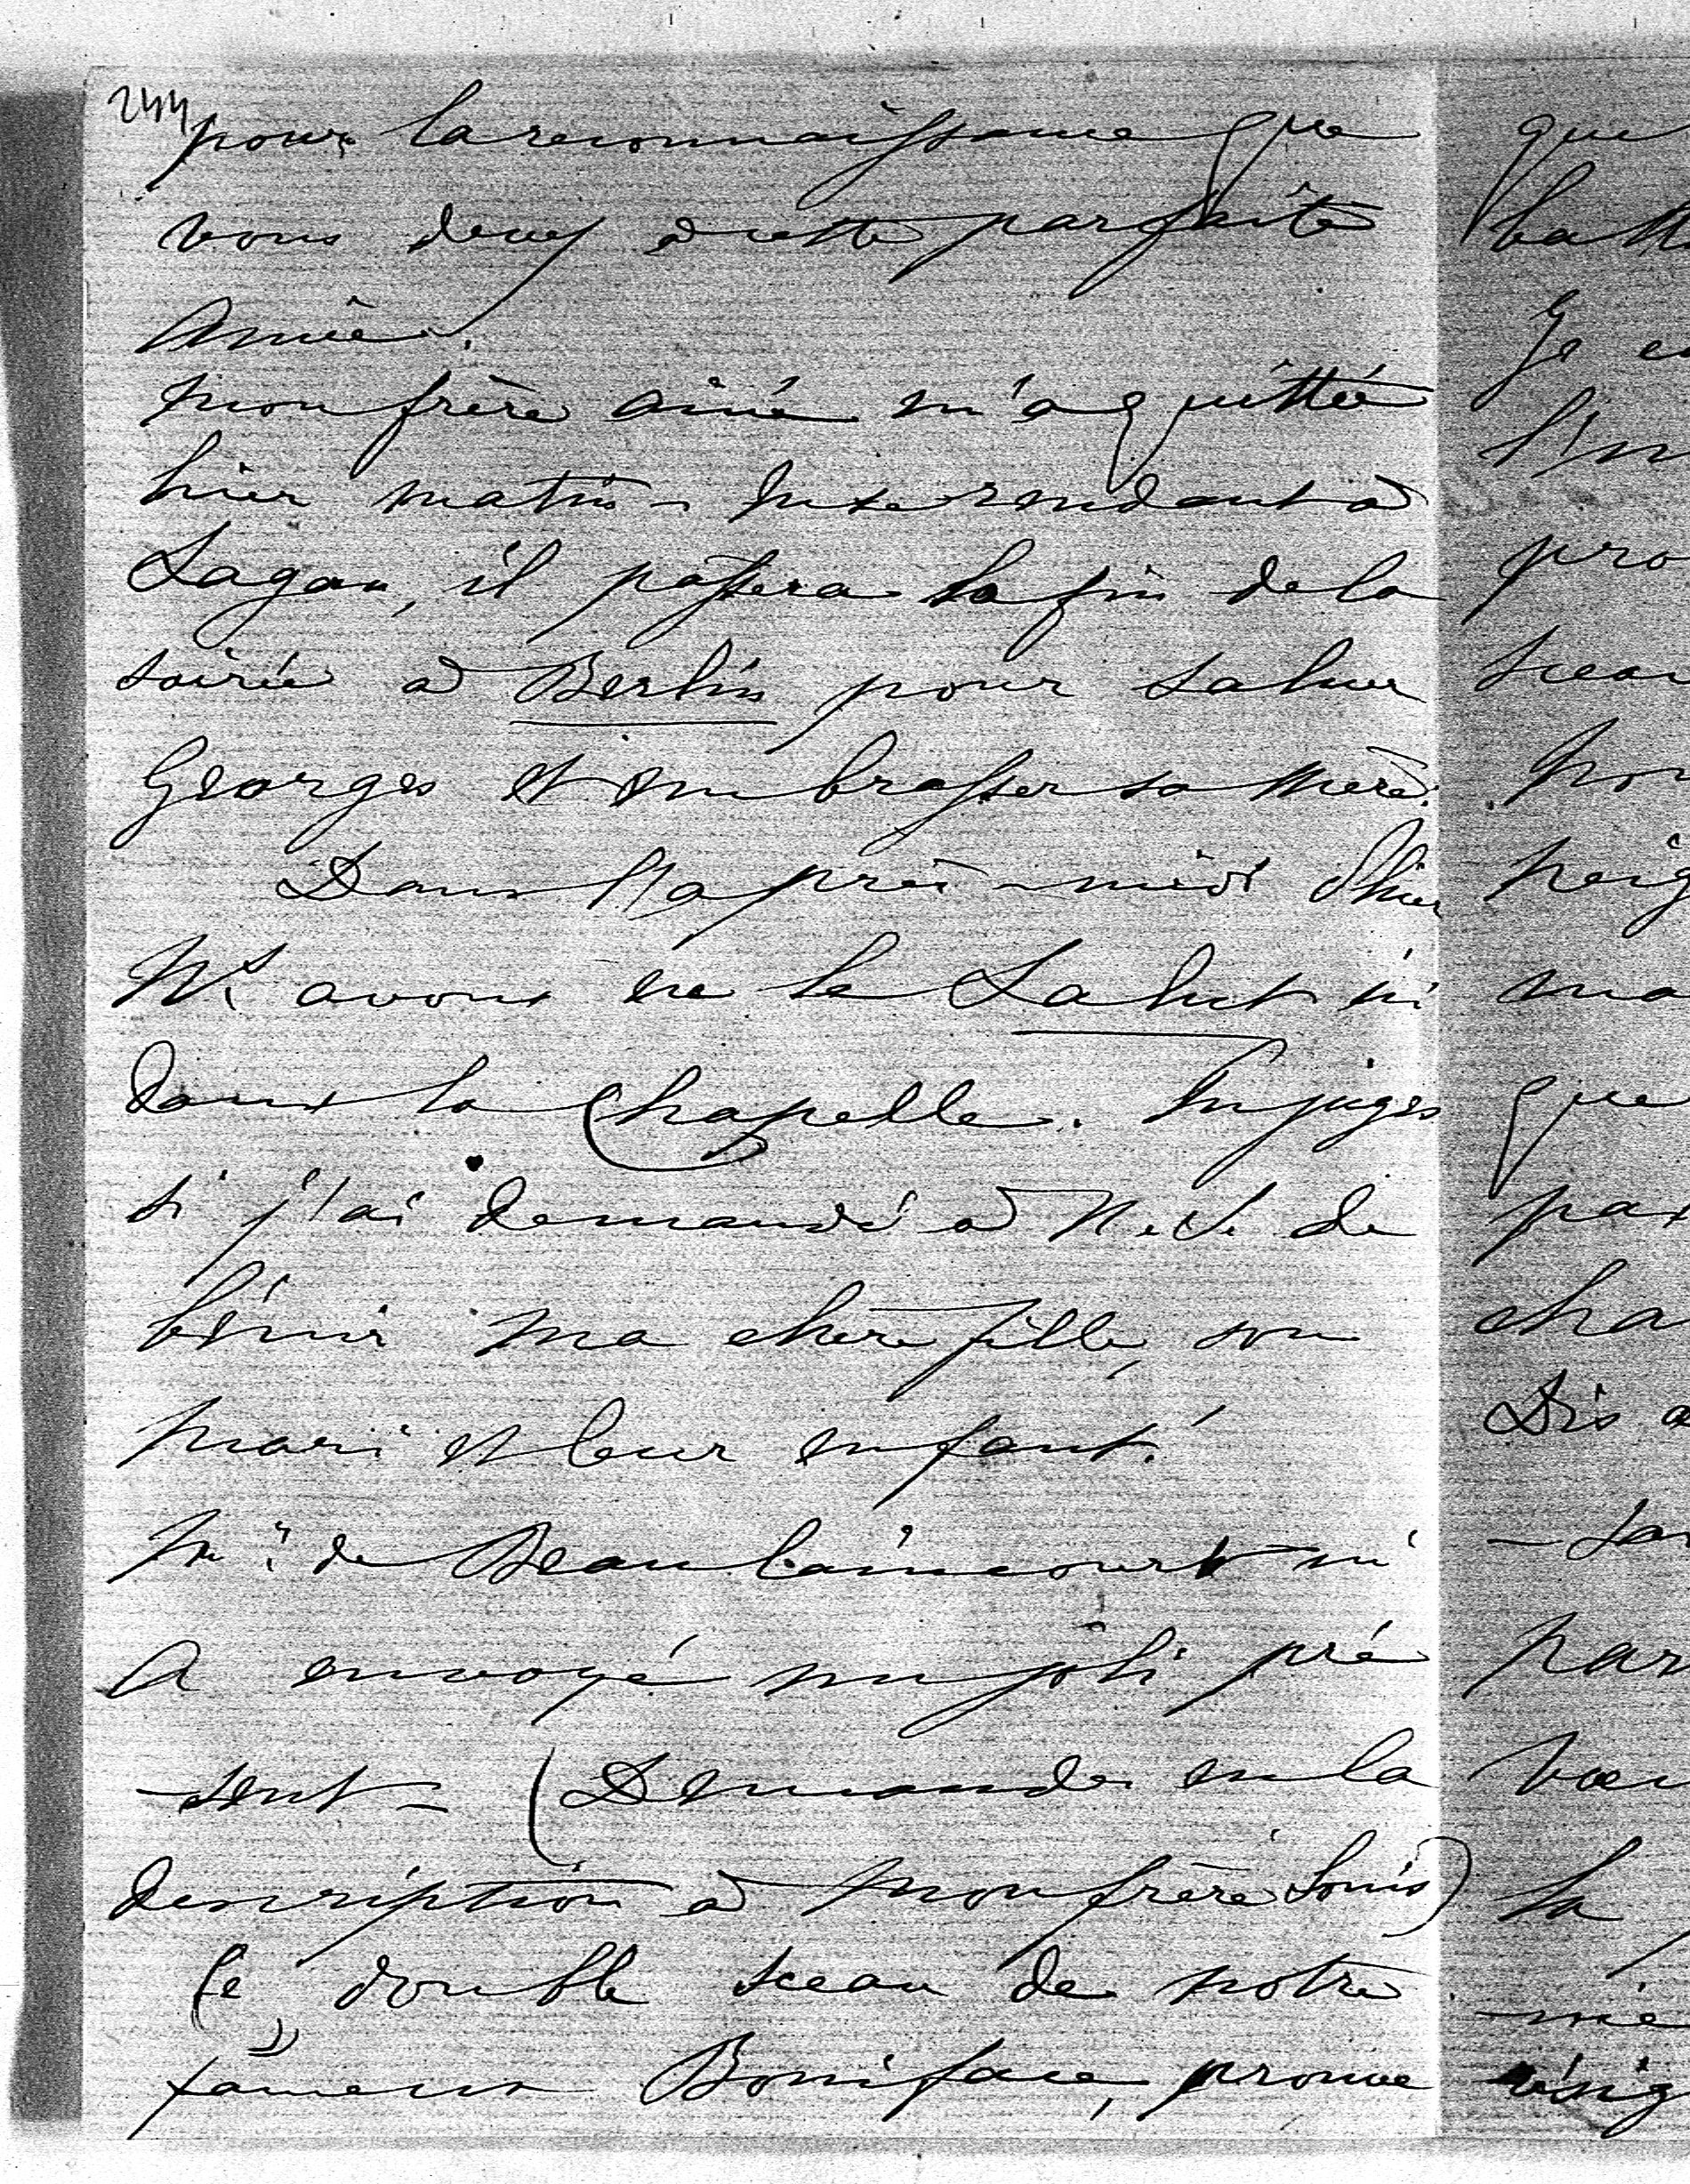 244
pour la reconnaissance que
vous devez à cette parfaite
Amie.
Mon frère ainé m'a quittée
hier matin - En se rendant à
Sagan, il passera la fin de la
soirée à Berlin pour saluer
Georges et embrasser sa mère.
Dans l'après-midi d'hier
Ns avons eu le Salut ici
dans la Chapelle. Tu juges
si j'ai demandé à N. S. de
bénir ma chère fille, son
mari et leur enfant.
Me de Beaulaincourt m'
a envoyé un joli pré
-sent - (Demandes en la
description à mon frère Louis)
le double sceau de notre
fameux Boniface, prouve
que
batt
Je
pro
sceau
neig
ma
que
pas
cha
Dis a
par
la